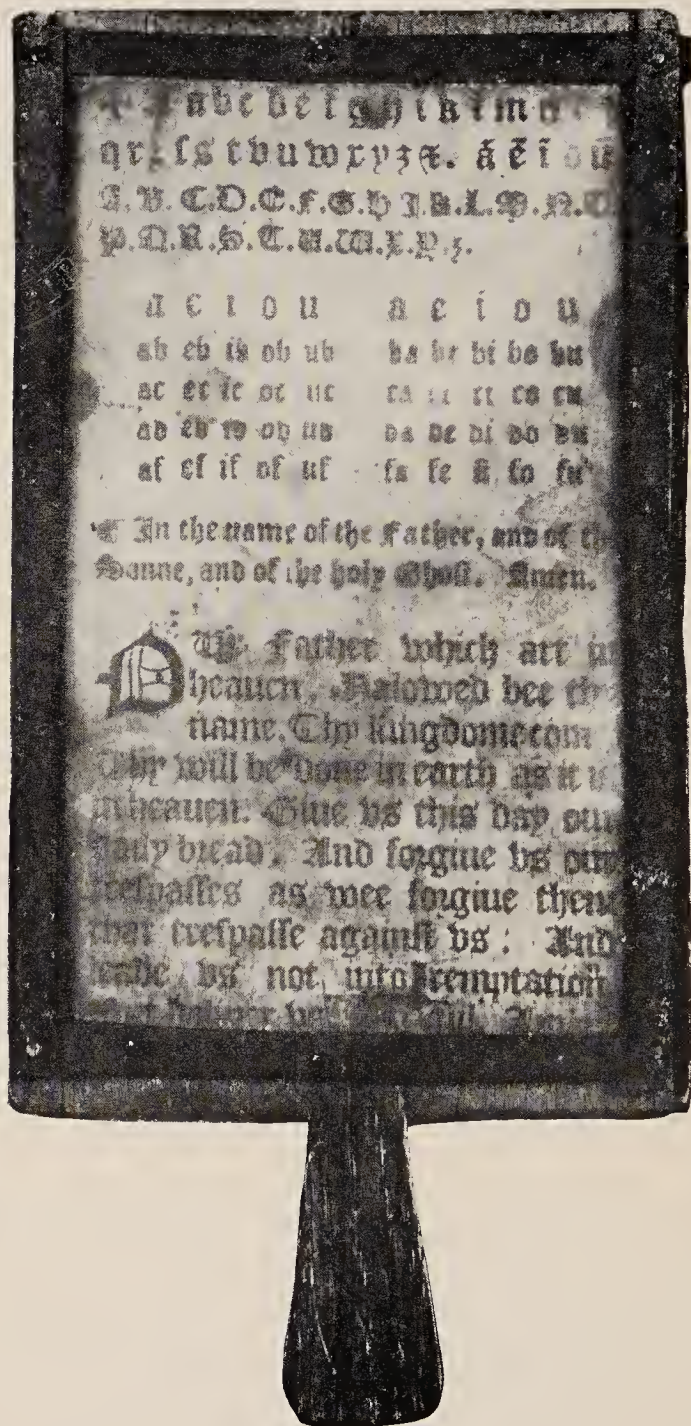 a b c d e f g h i k l m n
q r ꝛ ſ s t v u w x y z &. ã ẽ ĩ õ ũ
A. B. C. D. E. F. G. H I. K. L. M. N. O
P. Q. R. S. T. U. W. X. Y. z.
a e i o u a e i o u
ab eb ib ob ub ba be bi bo bu
ac ec ic oc uc ca ce ci co cu
ad ed id od ud da de di do du
af ef if of uf fa fe fi fo fu
¶ In the name of the Father, and of th
Sonne, and of the holy Ghoſt. Amen.
OUr Father which art in
heauen, Halowed bee thy
name. Thy kingdome com
Thy will be done in earth as it is
in heauen. Giue vs this day our
daily bread. And forgiue vs our
treſpaſſes as wee forgiue them
that treſpaſſe againſt vs: And
leade vs not into temptation